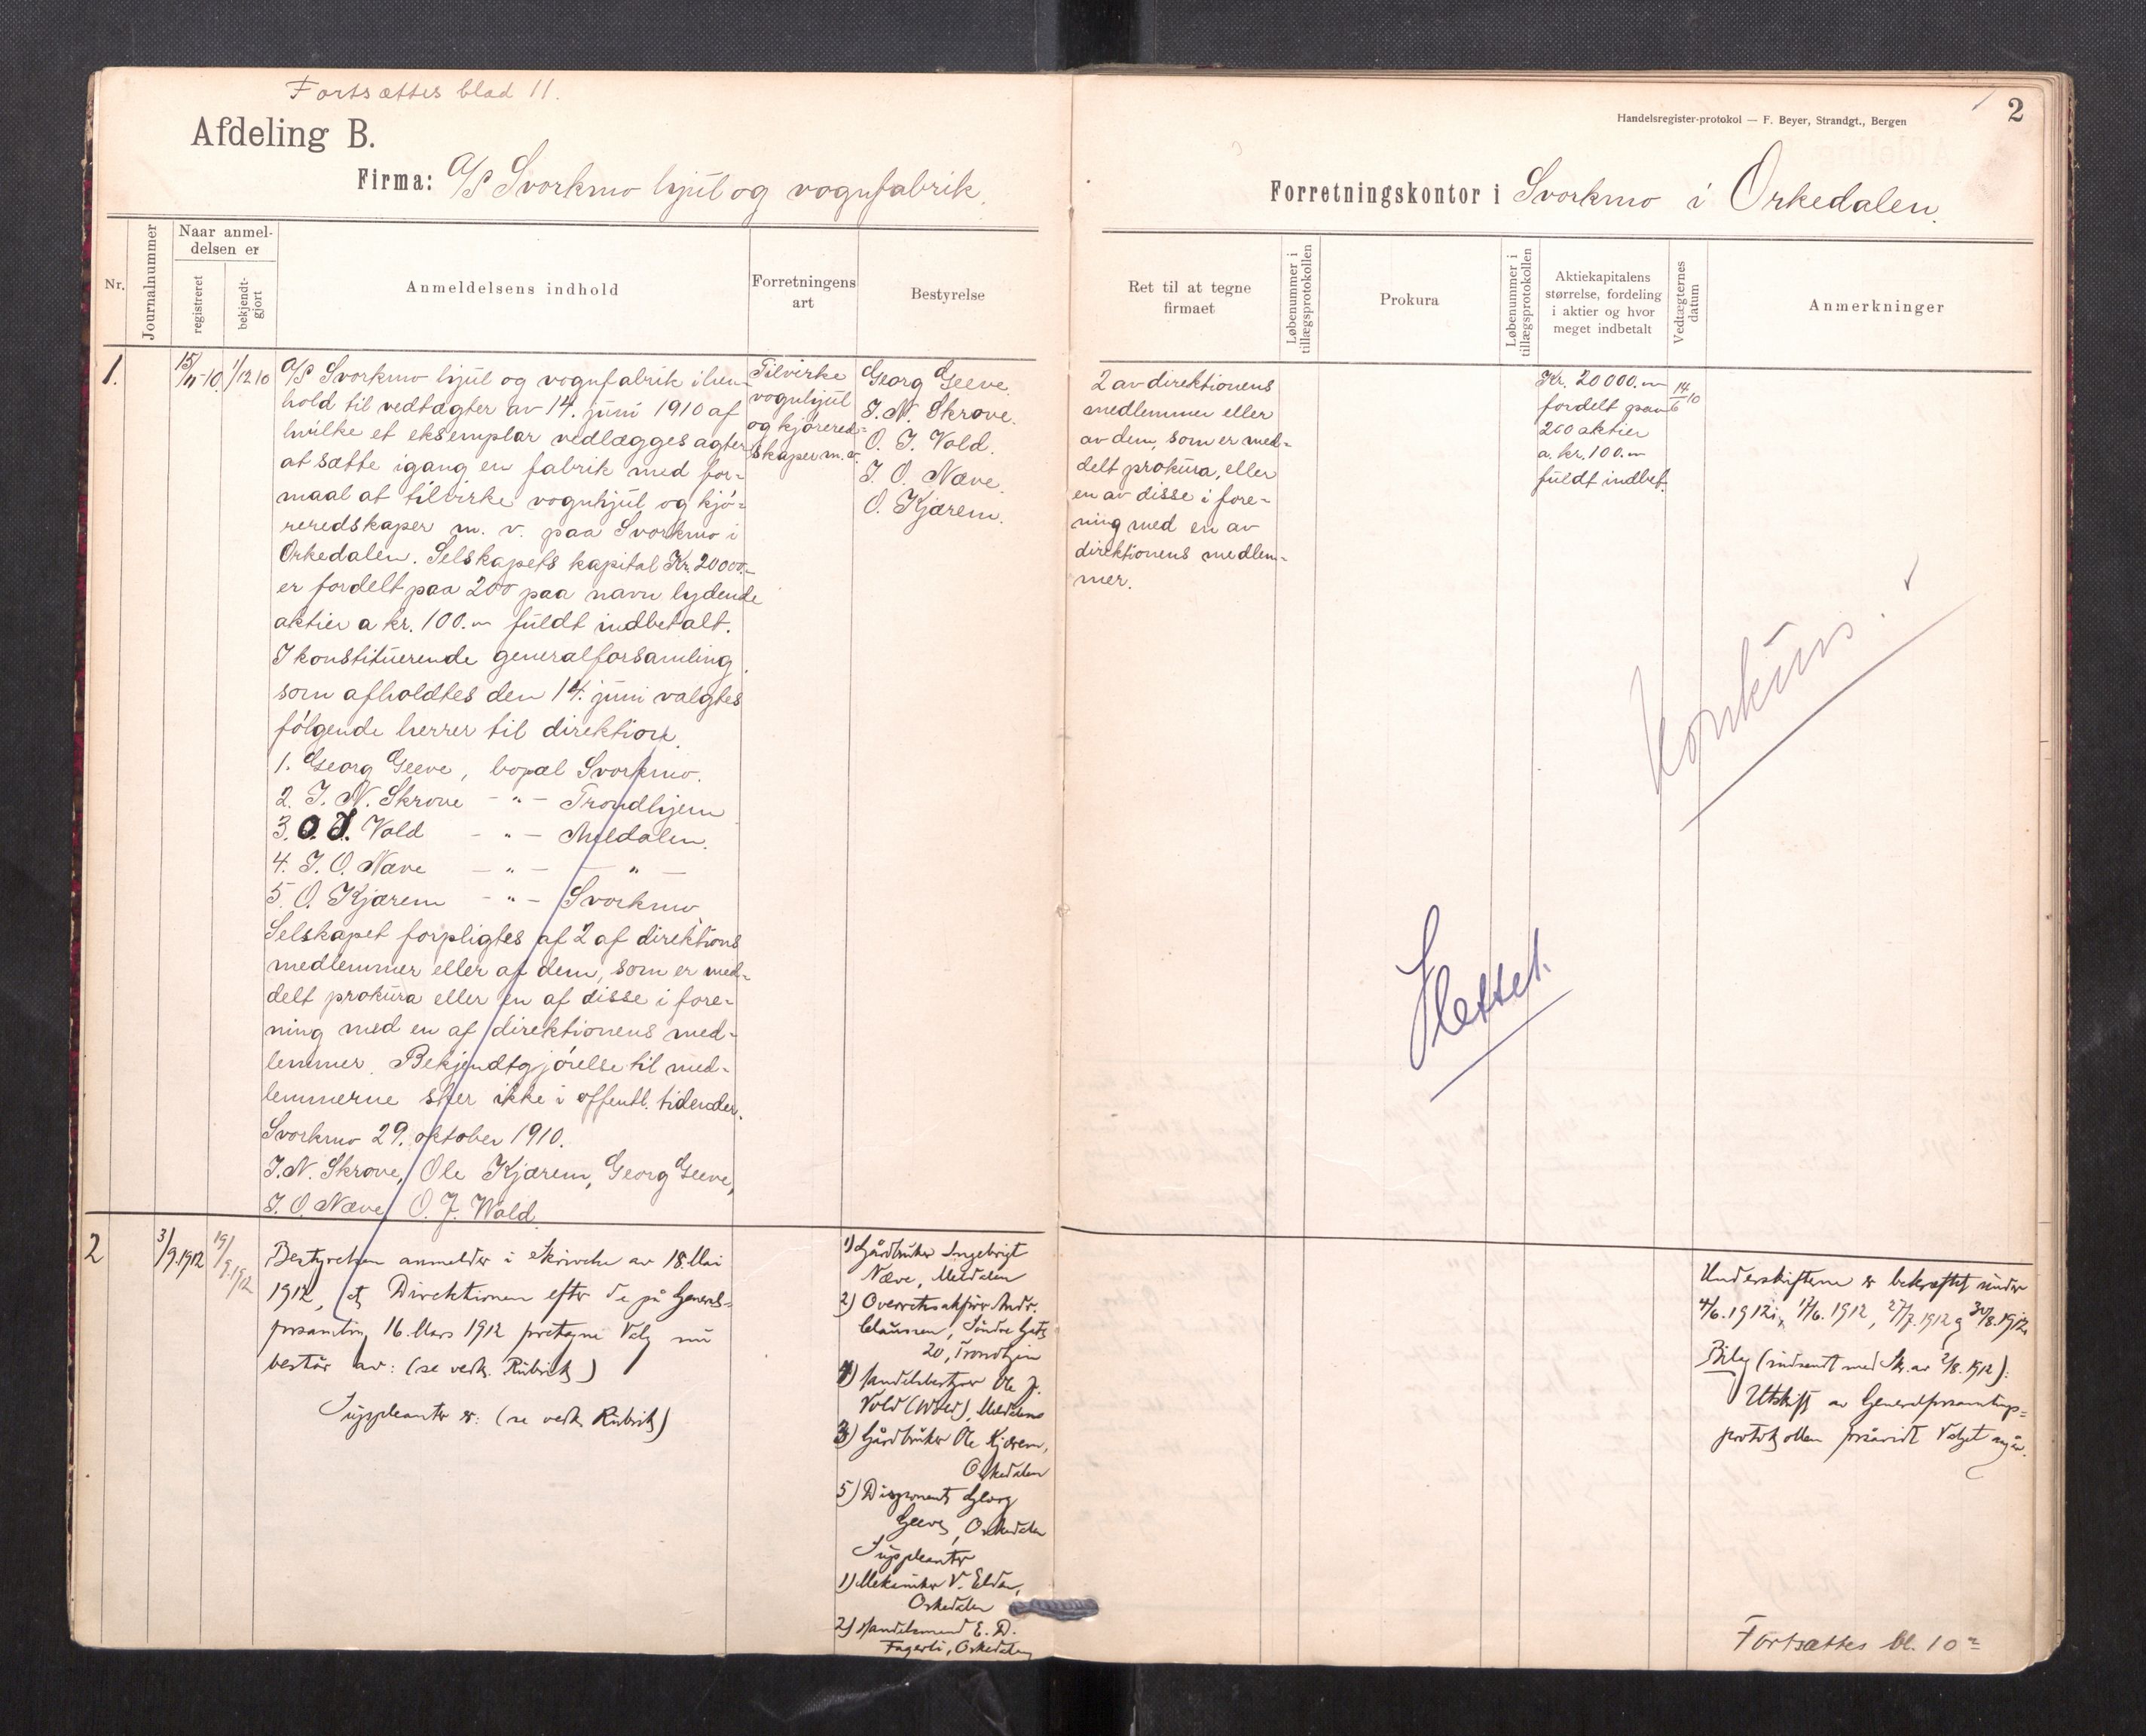 Fortsættes blad 11.
Afdeling B.
Firma: A/S Svorkmo hjul og vognfabrik.
Nr.
Journalnummer
Naar anmel-
delsen er
registreret
bekjendt-
gjort
Anmeldelsens indhold
Forretningens
art
Bestyrelse
1.
15/11-10.
1/12 10
A/S Svorkmo hjul og vognfabrik i hen-
hold til vedtægter av 14. juni 1910 af
hvilke et eksemplar vedlægges agter
at sætte igang en fabrik med for-
maal at tilvirke vognhjul og kjø-
reredskaper m. v. paa Svorkmo i
Orkedalen. Selskapets kapital Kr. 20000.-
er fordelt paa 200 paa navn lydende
aktier a kr. 100.- fuldt indbetalt.
I konstituerende generalforsamling
som afholdtes den 14. juni valgtes
følgende herrer til direktion.
1. Georg Geeve, bopæl Svorkmo.
2. I. N. Skrove -"- Trondhjem
3. O. J. Vold -"- Meldalen.
4. I. O. Næve -"- -"-
5. O. Kjærem -"- Svorkmo
Selskapet forpligtes af 2 af direktions
medlemmer eller af dem, som er med-
delt prokura eller en af disse i fore-
ning med en af direktionens med-
lemmer. Bekjendtgjørelse til med-
lemmerne sker ikke i offentl. tidender.
Svorkmo 29. oktober 1910.
I. N. Skrove, Ole Kjærem, Georg Geeve,
I. O. Næve O. J. Wold.
Tilvirke
vognhjul
og kjørered-
skaper m. v.
Georg Geeve.
I. N. Skrove.
O. J. Vold.
I. O. Næve.
O. Kjærem.
2
3/9.1912
19/9.1912
Bestyrelsen anmelder i Skrivelse av 18. Mai
1912, at Direktionen efter de på General-
forsamling 16. Mars 1912 foretagne Valg nu
består av: (se vedk. Rubrik)
Suppleanter er: (se vedk. Rubrik)
1) Gårdbruker Ingebrigt
Næve, Meldalen
2) Overretssakfører Andr.
Claussen, Søndre Gate
20, Trondhjem
4) Handelsbestyrer Ole J.
Vold (Wold), Meldalen
3) Gårdbruker Ole Kjærem,
Orkedalen
5) Disponent Georg
Geeve, Orkedalen
Suppleanter
1) Mekaniker V. Elden,
Orkedalen
2) Handelsmand E. D.
Fagerli, Orkedalen
Handelsregister-protokol — F. Beyer, Strandgt., Bergen
2
Forretningskontor i Svorkmo i Orkedalen.
Ret til at tegne
firmaet
Løbenummer i
tillægsprotokollen
Prokura
Løbenummer i
tillægsprotokollen
Aktiekapitalens
størrelse, fordeling
i aktier og hvor
meget indbetalt
Vedtægternes
datum
Anmerkninger
2 av direktionens
medlemmer eller
av dem, som er med-
delt prokura, eller
en av disse i fore-
ning med en av
direktionens medlem-
mer.
Kr. 20000.-
fordelt paa
200 aktier
a. kr. 100.-
fuldt indbet.
14/6 10
Konkurs.
Slettet.
Underskrifterne er bekræftet under
4/6.1912, 12/6.1912, 27/7.1912 og 30/8.1912
Bilag (indsendt med Skr. av 2/8.1912):
Utskrift av Generalforsamlings-
protokollen forsåvidt Valget angår.
Fortsættes bl. 10